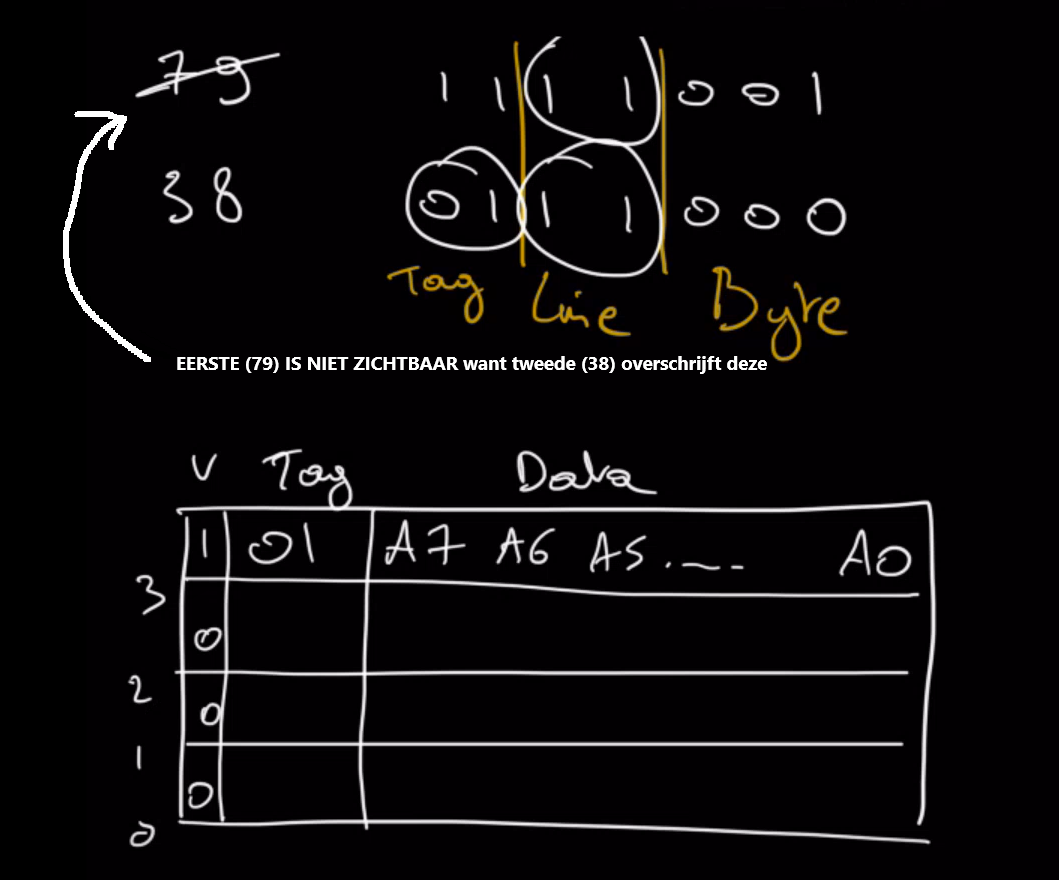 79 1 1 1 1 0 0 1
38 0 1 1 1 0 0 0
Tag Line Byte
EERSTE (79) IS NIET ZICHTBAAR want tweede (38) overschrijft deze
V Tag Data
1 01 A7 A6 A5 .--- A0
3
0
2
0
1
0
0